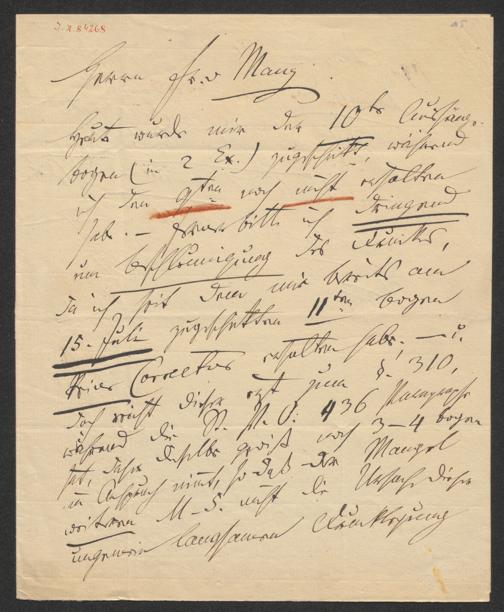 I. N. 84268
Herrn Fr. v Manz
Heute wurde mir der 10te Aushänge-
bogen (in 2 Ex.) zugeschickt, während
ich den 9ten noch nicht erhalten
habe. — bitte ich dringend
um Beschleunigung des Druckes,
da ich seit dem mir bereits am
15. Juli zugeschickten 11ten Bogen
keine Correctur erhalten habe, — u.
doch reicht dieser erst zum §. 310,
während die 436 Paragraphe
hat, daher dieselbe gewiß noch 3–4 Bogen
in Anspruch nimmt, so daß der Mangel
weiteren M–S. nicht die Ursache dieser
ungemein langsamen Drucklegung